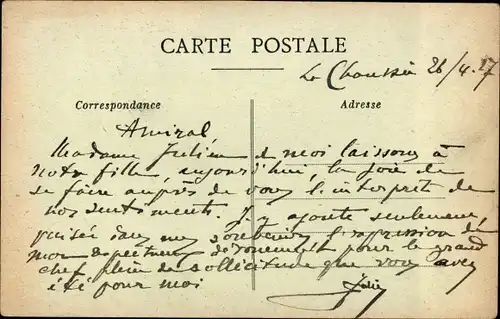 CARTE POSTALE
La Chaussée 26/4.27
Correspondance
Adresse
Amiral,
Madame Julien & moi laissons à
notre fille, aujourd'hui, la joie de
se faire auprès de vous l'interprète de
nos sentiments. J'y ajoute seulement,
puisée dans mes souvenirs l'expression de
mon respectueux dévouement pour le grand
chef plein de sollicitude que vous avez
été pour moi